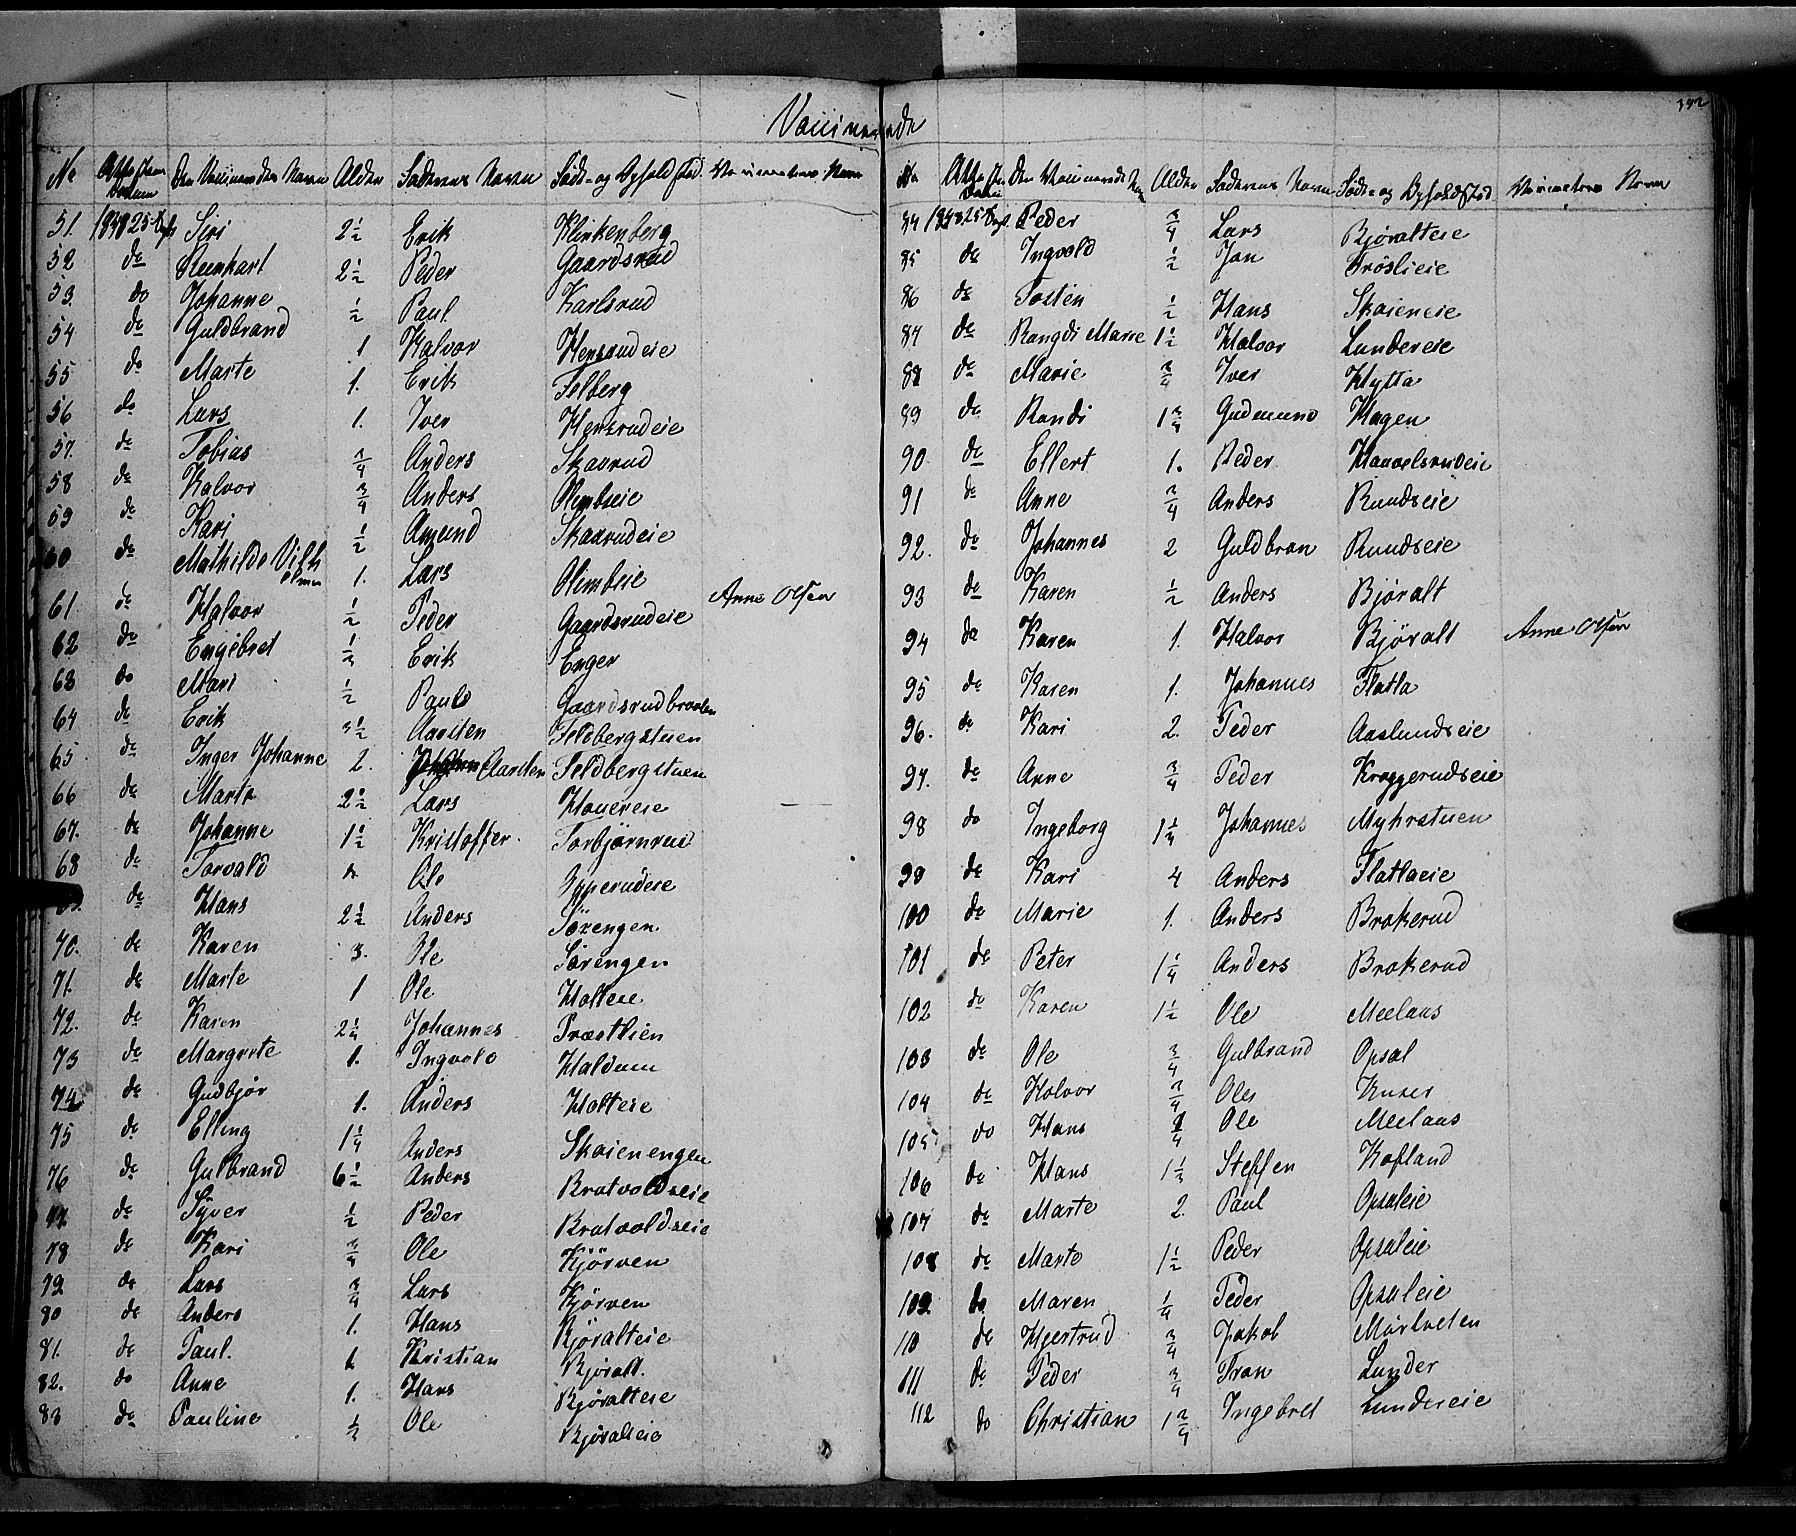 Vaccinerede
392
No Attestens Datum Den Vaccineredes Navn Alder Faderens Navn Føde- og Opholdsted Vaccinateurs Navn
51. 1848 25 Siri 2½ Erik Klinkenberg
52 do Reinhart 2½ Peder Gaardsrud
53. do Johanne ½ Paul Karlsrud
54 do Guldbrand 1 Halvor Hensrudeie
55 do Marte 1. Erik Felberg
56 do Lars 1. Iver Hensrudeie
57. do Tobias ¾ Anders Skaarud
58 do Halvor ¾ Anders Olimbseie
59 do Kari ½ Amund Skaarudeie
60 do Mathilde Vilhelmine 1. Lars Olimbeie
61 do Halvor ½ Peder Gaardsrudeie Anne Olsen
62 do Engebret ½ Erik Enger
63 do Mari ½ Paul Gaardsrudbraaten
64 do Erik 3½ Aarsten Feldbergstuen
65. do Inger Johanne 2. Aarsten Feldbergstuen
66 do Marte 2½ Lars Houereie
67. do Johanne 1½ Kristoffer Torbjørnrud
68 do Torvald Ole
69. do Hans 2½ Anders Sørengen
70. do Karen 3. Ole Sørengen
71. do Marte 1 Ole Holteie
72. do Karen 2¼ Johannes Præstlien
73 do Margrete 1. Ingvold Haldum
74. do Gudbjør 1. Anders Holteie
75 do Elling 1¼ Anders Skoienengen
76 do Gulbrand 6½ Anders Bratvoldseie
77. do Syver ½ Peder Bratvoldseie
78 do Kari ¾ Ole Kjørven
79 do Lars ¾ Lars Kjørven
80 do Anders 1. Hans Bjøralteie
81. do Paul. 1 Kristian Bjøralt.
82. do Anne 1. Hans Bjøralteie
83 do Pauline ½ Ole Bjøralteie
No Attestens Datum Den Vaccineredes Navn Alder Faderens Navn Føde- og Opholdsted Vaccinateurs Navn
84 1848 25 Peder ¾ Lars Bjøralteie
85 do Ingvold ½ Jan Frøslieie
86 do Tosten ½ Hans Skoieneie
87 do Rangdi Marie 1½ Halvor Lundereie
88 do Marie ¾ Iver Hytta
89 do Randi 1¾ Gudmund Hagen
90 do Ellert 1. Peder Haavelsrudeie
91 do Anne ¾ Anders Rundseie
92. do Johannes 2 Guldbran Rundseie
93 do Karen ½ Anders Bjøralt
94 do Karen 1. Halvor Bjøralt Anne Olsen
95 do Karen 1. Johannes Flatla
96. do Kari 2. Peder Aaslundseie
97. do Anne ¾ Peder Kroggerudseie
98 do Ingeborg Johannes Myhrstuen
99 do Kari 4 Anders Flatlaeie
100 do Marie 1. Anders Brokerud
101 do Peter 1¼ Anders Brokerud
102 do Karen 1½ Ole Meelaus
103 do Ole ¾ Gulbrand Opsal
104 do Holvor ¾ Ole
105 do Hans Ole Meelaus
106 do Hans Steffen Kofland
107 do Marte 2. Paul Opsaleie
108 do Marte 1½ Peder Opsaleie
109. do Maren ¼ Peder Opsaleie
110 do Hjertrud ¾ Jakob
111 do Peder ¾ Tron Lunder
112 do Christian 1¾ Ingebret Lundereie